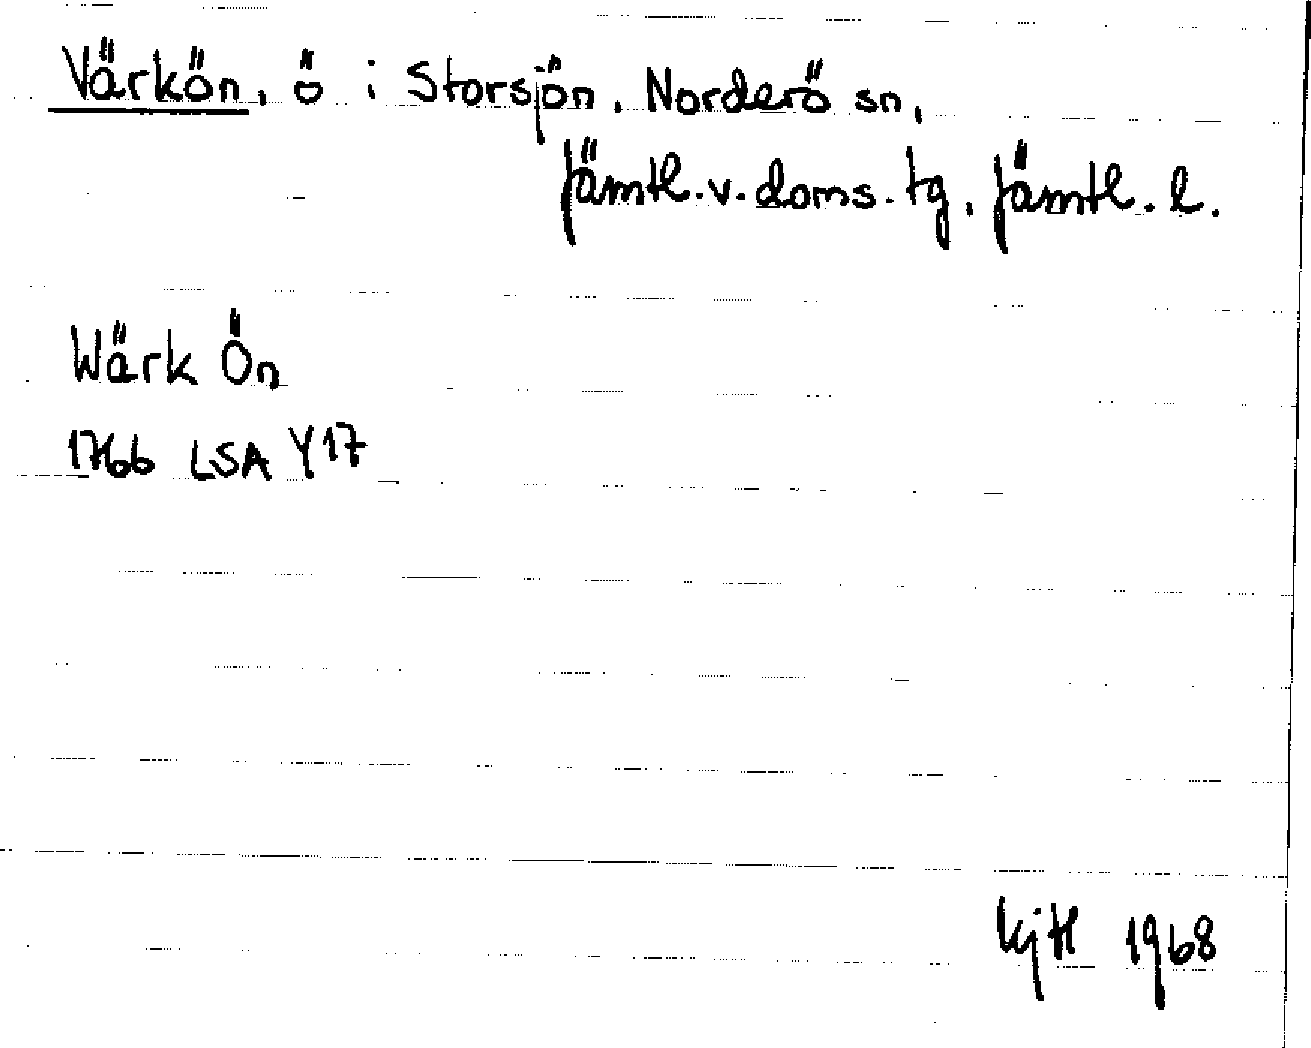 Värkön, ö i Storsjön, Norderö sn,
Jämtl.v.doms.tg, Jämtl. l.
Wärk Ön
1766 LSA Y17
1968